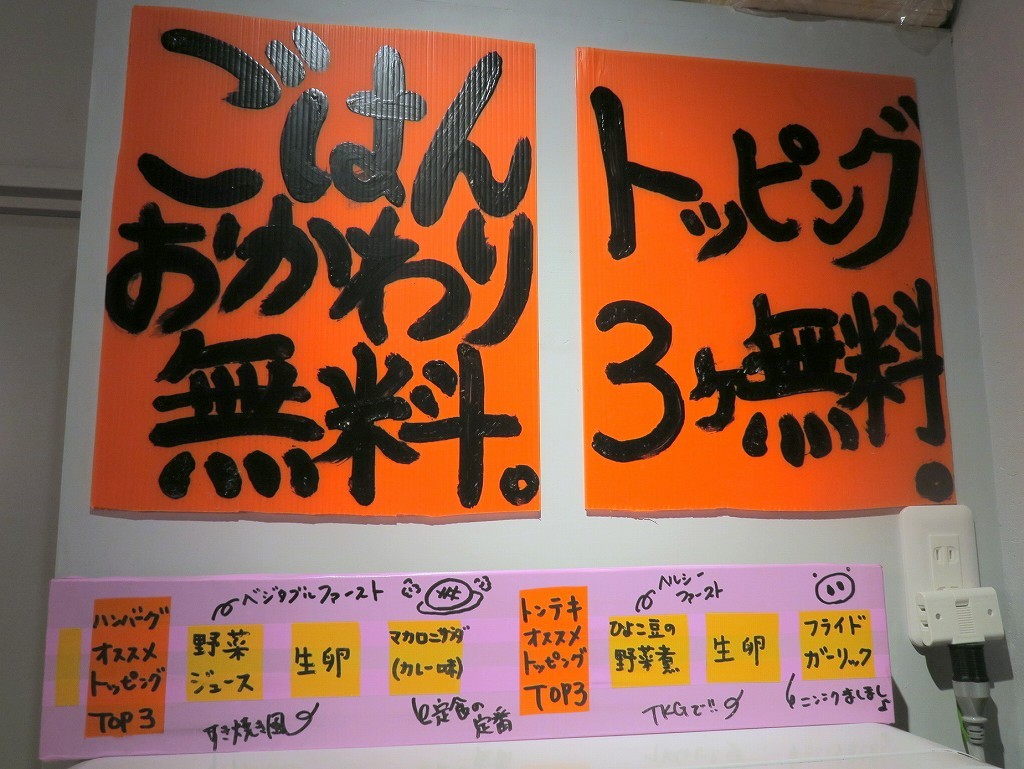 ごはん
おかわり
無料。
トッピング
3ヶ無料。
ハンバーグ
オススメ
トッピング
TOP3
ベジタブルファースト
野菜
ジュース
生卵
すき焼き風
マカロニサラダ
(カレー味)
定食の
定番
トンテキ
オススメ
トッピング
TOP3
ヘルシー
ファースト
ひよこ豆の
野菜煮
生卵
TKGで!!
フライド
ガーリック
ニンニクましまし♪